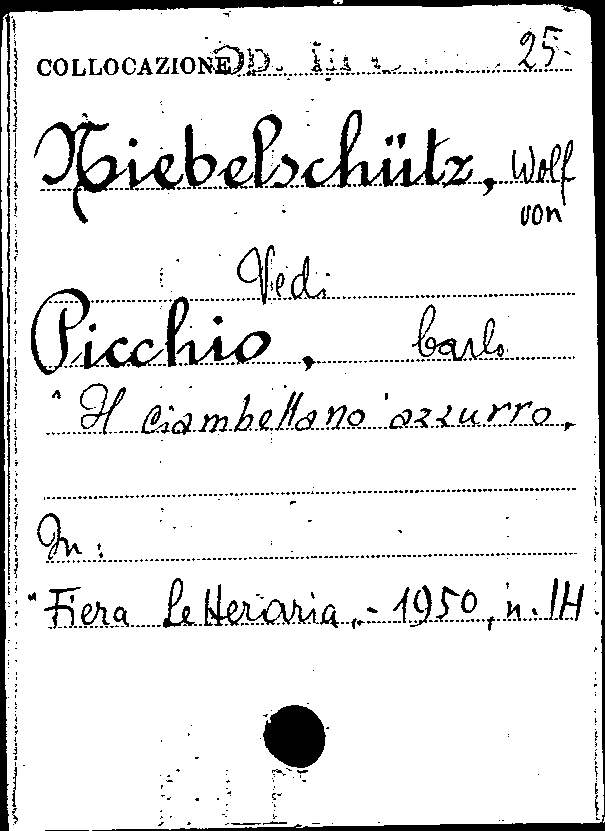 COLLOCAZIONE 25-
Niebelschütz, Wolf
von
Vedi
Picchio, Carlo
"Il ciambellano azzurro„
In:
"Fiera Letteraria„- 1950, n. 14